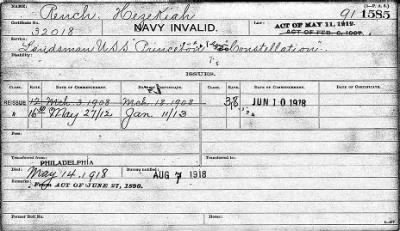 (3-P. A. S.)
Rench, Hezekiah 91 1585
Certificate No.
32018 NAVY INVALID. Law: ACT OF MAY 11, 1912.
ACT OF FEB. 6, 1907.
Service:
Landsman U.S.S. Princeton, "Constellation"
Disability:
ISSUES.
CLASS. DATE OF COMMENCEMENT. DATE OF CERTIFICATE. CLASS. RATE. DATE OF COMMENCEMENT. DATE OF CERTIFICATE.
REISSUE 12 Mch. 3 1908 Mch. 18 1908 38 JUN 10 1918
16 May 27/12 Jan. 11/13
Transferred from
PHILADELPHIA
Died May 14, 1918 Bureau notified AUG 7 1918
Transferred to
From ACT OF JUNE 27, 1890.
Remarks:
Former Roll No. Home